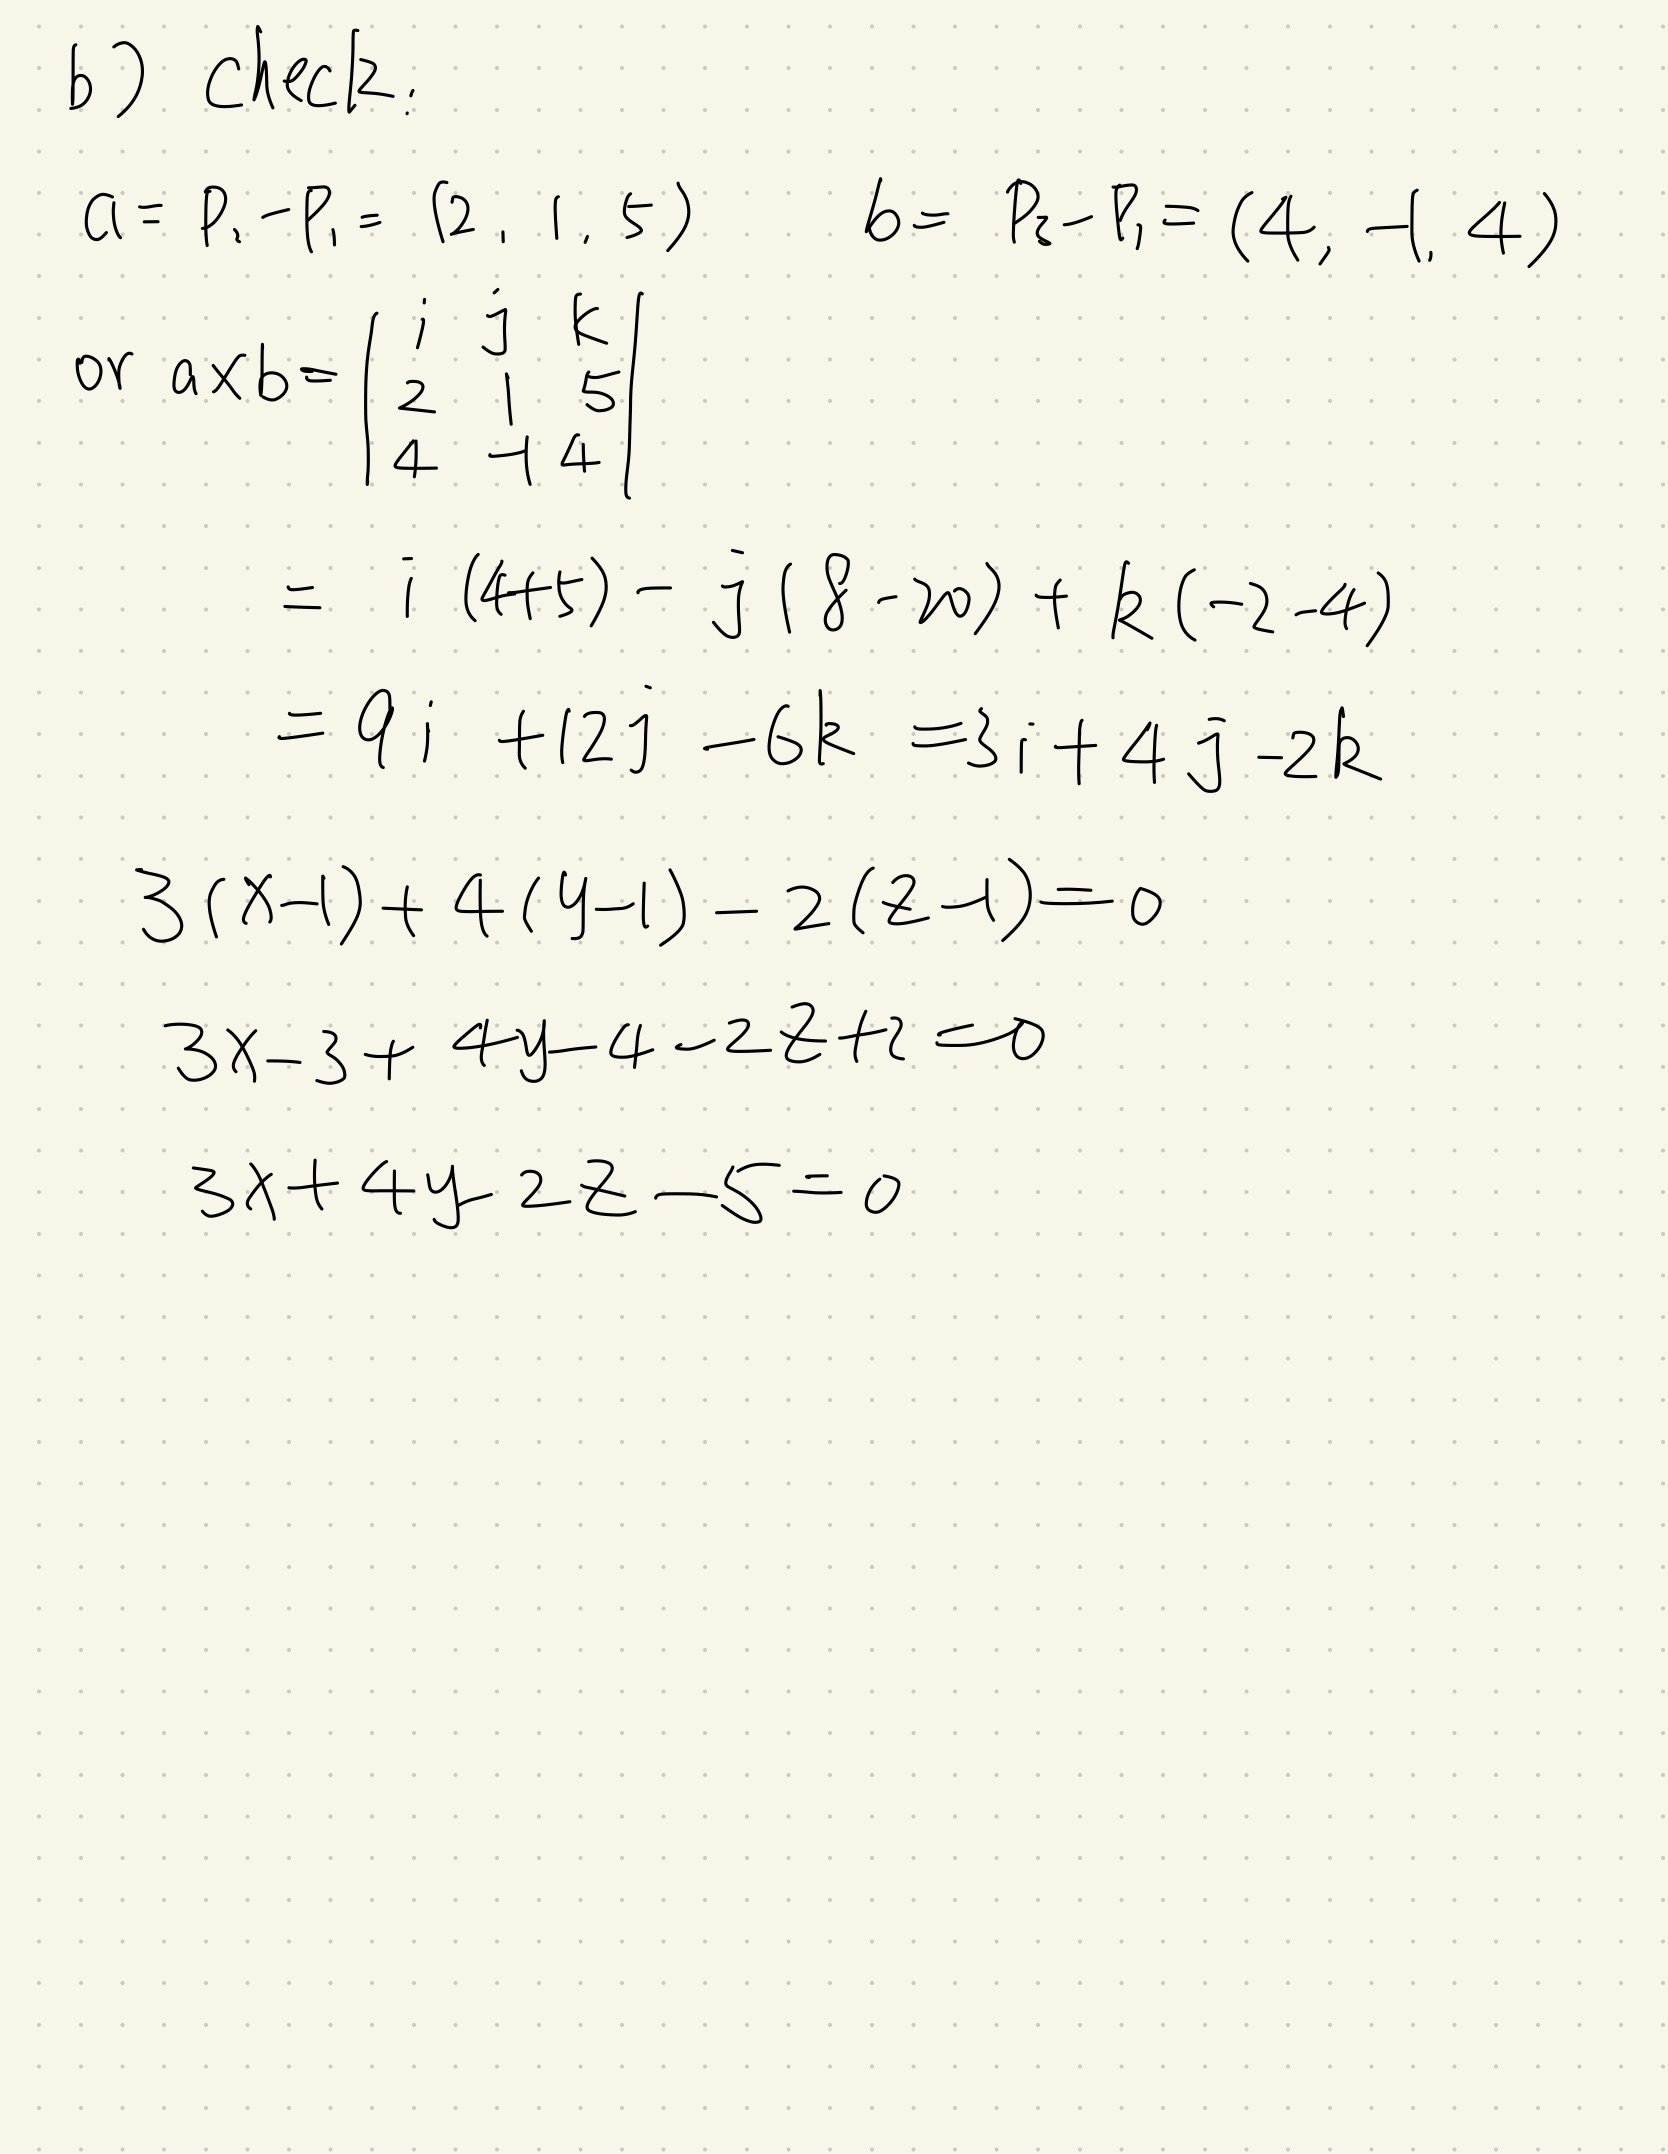 b) check:
a = P₂ - P₁ = (2, 1, 5) b = P₃ - P₁ = (4, -1, 4)
or a×b = | i j k |
| 2 1 5 |
| 4 -1 4 |
= i (4+5) - j (8-20) + k (-2-4)
= 9i + 12j - 6k = 3i + 4j - 2k
3(x-1) + 4(y-1) - 2(z-1) = 0
3x - 3 + 4y - 4 - 2z + 2 = 0
3x + 4y - 2z - 5 = 0